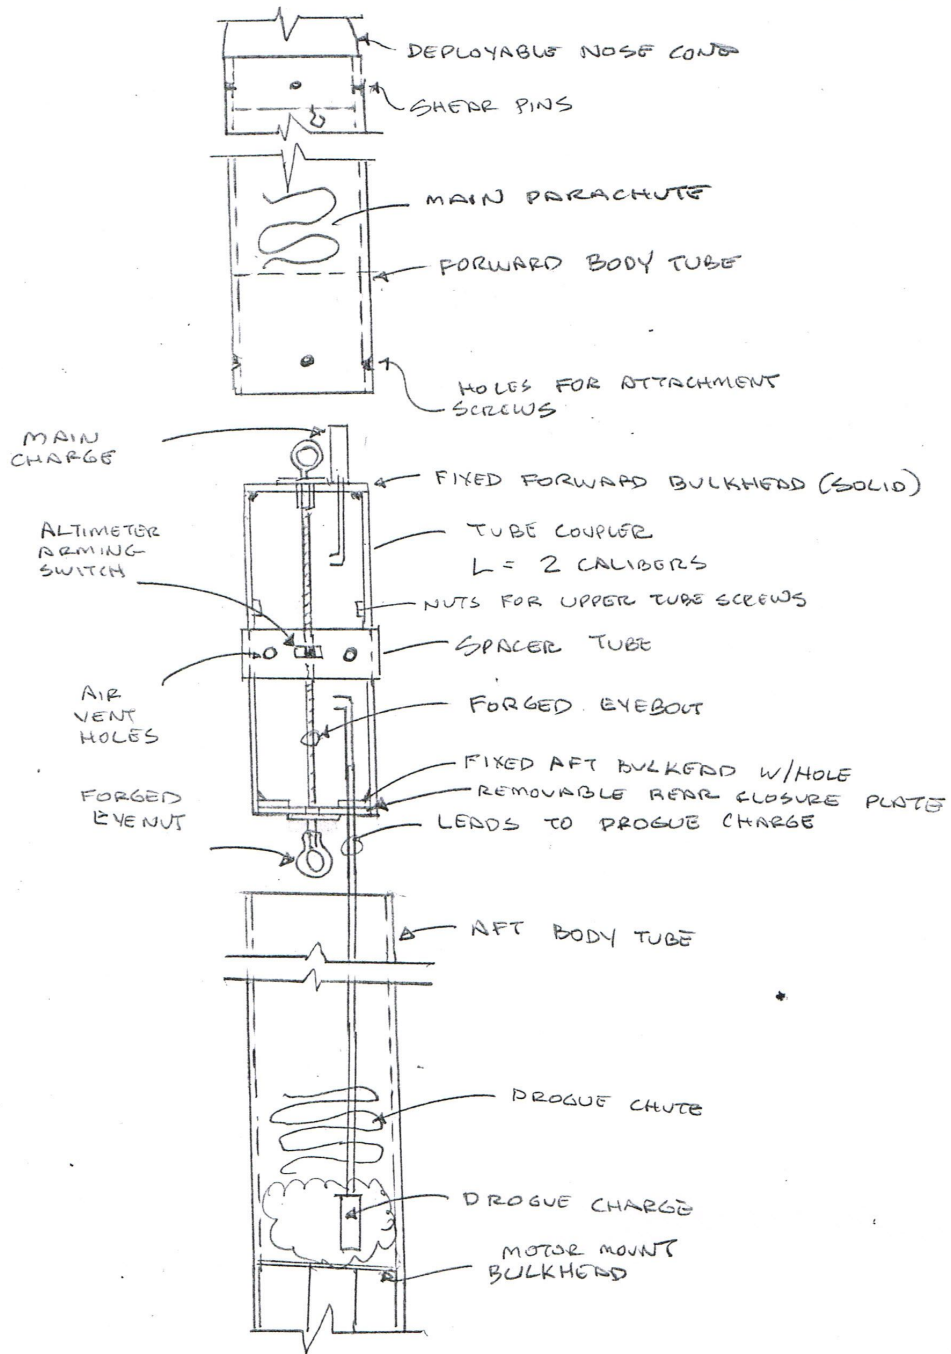 DEPLOYABLE NOSE CONE
SHEAR PINS
MAIN PARACHUTE
FORWARD BODY TUBE
HOLES FOR ATTACHMENT
SCREWS
MAIN
CHARGE
FIXED FORWARD BULKHEAD (SOLID)
ALTIMETER
ARMING
SWITCH
TUBE COUPLER
L = 2 CALIBERS
NUTS FOR UPPER TUBE SCREWS
SPACER TUBE
AIR
VENT
HOLES
FORGED EYEBOLT
FIXED AFT BULKEAD W/HOLE
REMOVABLE REAR CLOSURE PLATE
FORGED
EYENUT
LEADS TO DROGUE CHARGE
AFT BODY TUBE
DROGUE CHUTE
DROGUE CHARGE
MOTOR MOUNT
BULKHEAD